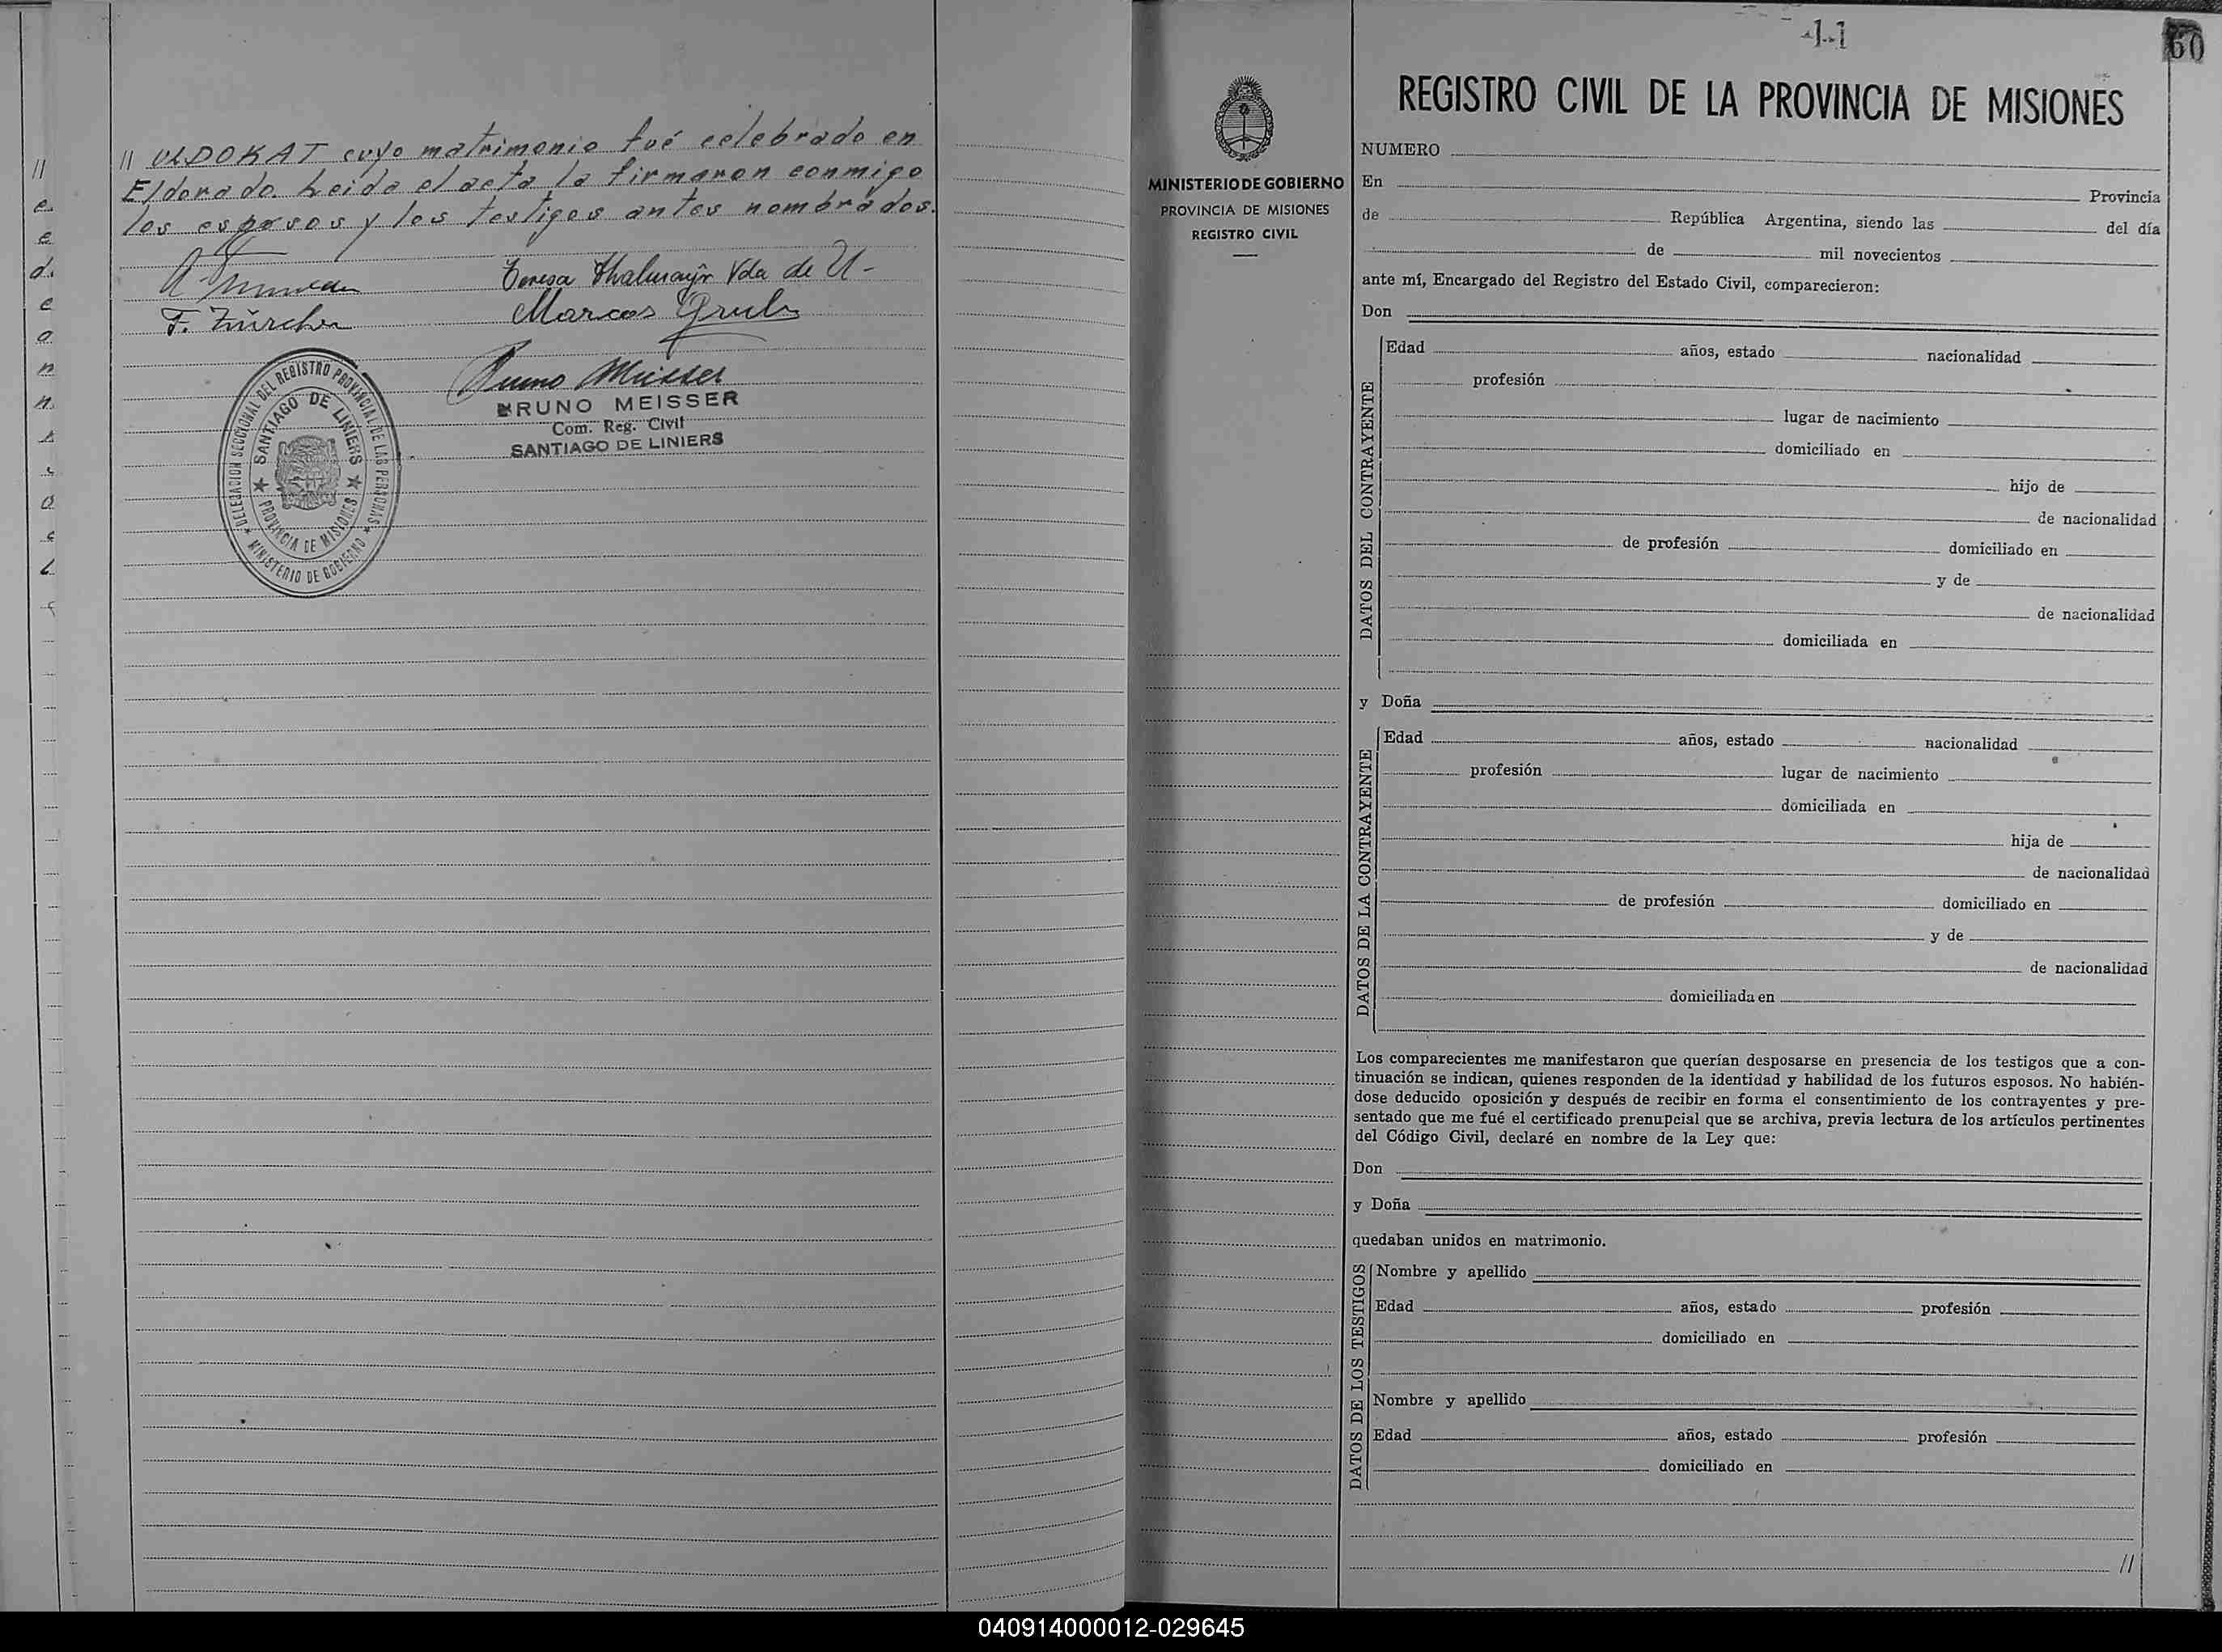 //
e.
e
d.
e
a
n
n.
// ULDOKAT cuyo matrimonio fué celebrado en
Eldorado. Leida el acta la firmaron conmigo
los esposos y los testigos antes nombrados.
Teresa Thalmayr Vda de U-
F. Zürcher
Marcos
Bruno Meisser
BRUNO MEISSER
Com. Reg. Civil
SANTIAGO DE LINIERS
DELEGACION SECCIONAL DEL REGISTRO PROVINCIAL DE LAS PERSONAS
SANTIAGO DE LINIERS
PROVINCIA DE MISIONES
MINISTERIO DE GOBIERNO
MINISTERIO DE GOBIERNO
PROVINCIA DE MISIONES
REGISTRO CIVIL
60
REGISTRO CIVIL DE LA PROVINCIA DE MISIONES
NUMERO
En Provincia
de República Argentina, siendo las del día
de mil novecientos
ante mí, Encargado del Registro del Estado Civil, comparecieron:
Don
DATOS DEL CONTRAYENTE
Edad años, estado nacionalidad
profesión
lugar de nacimiento
domiciliado en
hijo de
de nacionalidad
de profesión domiciliado en
y de
de nacionalidad
domiciliada en
y Doña
DATOS DE LA CONTRAYENTE
Edad años, estado nacionalidad
profesión lugar de nacimiento
domiciliada en
hija de
de nacionalidad
de profesión domiciliado en
y de
de nacionalidad
domiciliada en
Los comparecientes me manifestaron que querían desposarse en presencia de los testigos que a con-
tinuación se indican, quienes responden de la identidad y habilidad de los futuros esposos. No habién-
dose deducido oposición y después de recibir en forma el consentimiento de los contrayentes y pre-
sentado que me fué el certificado prenupcial que se archiva, previa lectura de los artículos pertinentes
del Código Civil, declaré en nombre de la Ley que:
Don
y Doña
quedaban unidos en matrimonio.
DATOS DE LOS TESTIGOS
Nombre y apellido
Edad años, estado profesión
domiciliado en
Nombre y apellido
Edad años, estado profesión
domiciliado en
//
040914000012-029645